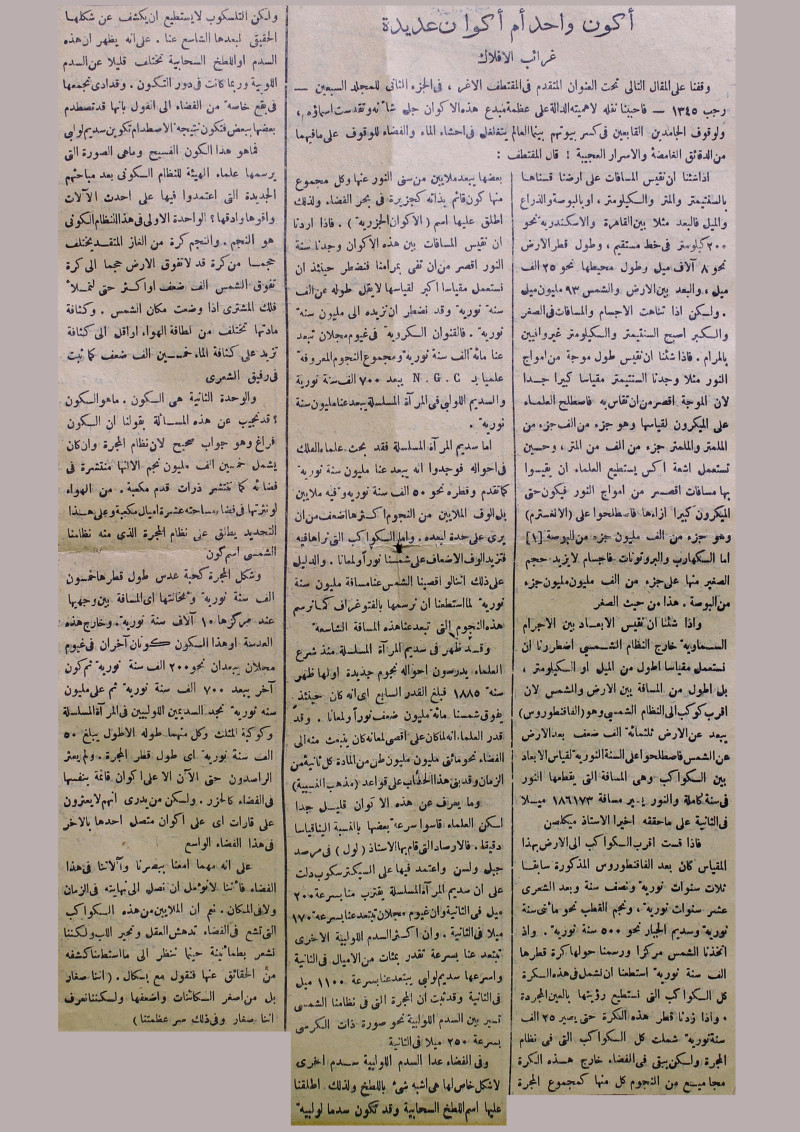 أكون واحد أم أكوان عديدة
غرائب الافلاك
وقفنا على المقال التالى تحت العنوان المتقدم فى المقتطف الاغر ، فى الجزء الثانى للمجلد السبعين —
رجب ١٣٤٥ — فأحببنا نقله لاهميته الدالة على عظمة مبدع هذه الاكوان جل شأنه وتقدست اسماؤه ،
ولوقوف الجامدين القابعين فى كسر بيوتهم بينما العالم يتغلغل فى احشاء الماء والفضاء للوقوف على مافيهما
من الدقائق الغامضة والاسرار العجيبة ! قال المقتطف :
اذا شئنا ان نقيس المسافات على ارضنا قسناها
بالسنتيمتر والمتر والكيلومتر ، او بالبوصة والذراع
والميل فالبعد مثلا بين القاهرة والاسكندرية نحو
٢٠٠ كيلومتر فى خط مستقيم ، وطول قطر الارض
نحو ٨ آلاف ميل وطول محيطها نحو ٢٥ الف
ميل ، والبعد بين الارض والشمس ٩٣ مليون ميل
. ولكن اذا تناهت الاجسام والمسافات فى الصغر
والكبر اصبح السنتيمتر والكيلومتر غير وافيين
بالمرام . فاذا شئنا ان نقيس طول موجة من امواج
النور مثلا وجدنا السنتيمتر مقياسا كبيرا جدا
لان الموجة اقصر من ان تقاس به فاصطلح العلماء
على الميكرون لقياسها وهو جزء من الف جزء من
الملمتر والملمتر جزء من الف من المتر ، وحسين
تستعمل اشعة اكس يستطيع العلماء ان يقيسوا
بها مسافات اقصر من امواج النور فيكون حتى
الميكرون كبيرا ازاءها فاصطلحوا على (الانغسترم)
وهو جزء من الف مليون جزء من البوصة [١]
اما الكهارب والبروتونات فاجسام لا يزيد حجم
الصغير منها على جزء من الف مليون مليون جزء
من البوصة . هذا من حيث الصغر
واذا شئنا ان نقيس الابعاد بين الاجرام
السماوية خارج النظام الشمسى اضطررنا ان
نستعمل مقياسا اطول من الميل او الكيلومتر ،
بل اطول من المسافة بين الارض والشمس لان
اقرب كوكب الى النظام الشمسى وهو (الفاقنطوروس)
يبعد عن الارض ثلثمائة الف ضعف بعد الارض
عن الشمس فاصطلحوا على السنة النورية لقياس الابعاد
بين الكواكب وهى المسافة التى يقطعها النور
فى سنة كاملة والنور يسير مسافة ١٨٦١٧٣ ميلا
فى الثانية على ماحققه اخيرا الاستاذ ميكلصن
فاذا قست اقرب الكواكب الى الارض بهذا
المقياس كان بعد الفاقنطوروس المذكورة سابقا
ثلاث سنوات نورية ونصف سنة وبعد الشعرى
عشر سنوات نورية ، ونجم القطب نحو مائتى سنة
نورية وسديم الجبار نحو ٥٠٠ سنة نورية . واذ
اتخذنا الشمس مركزا ورسمنا حولها كرة قطرها
الف سنة نورية استطعنا ان نشمل فى هذه الكرة
كل الكواكب التى نستطيع رؤيتها بالعين المجردة
. واذا زدنا قطر هذه الكرة حتى يصير ٢٥ الف
سنة نورية شملت كل الكواكب التى فى نظام
المجرة ولكن يبقى فى الفضاء خارج هذه الكرة
مجاميع من النجوم كل منها كمجموع المجرة
بعضها يبعد ملايين من سنى النور عنها وكل مجموع
منها كون قائم بذاته كجزيرة فى بحر الفضاء ولذلك
اطلق عليها اسم (الاكوان الجزرية) . فاذا اردنا
ان نقيس المسافات بين هذه الاكوان وجدنا سنة
النور اقصر من ان تفى بمرامنا فنضطر حينئذ ان
نستعمل مقياسا اكبر لقياسها لايقل طوله عن الف
سنة نورية وقد نضطر ان نزيده الى مليون سنة
نورية . فالقنوان الكروية فى غيوم مجلان تبعد
عنا مائة الف سنة نورية ومجموع النجوم المعروفة
علميا بـ N . G . C يبعد ٧٠٠ الف سنة نورية
والسديم اللولبى فى المرأة المسلسلة يبعد عنا مليون سنة
نورية .
اما سديم المرأة المسلسلة فقد بحث علماء الفلك
فى احواله فوجدوا انه يبعد عنا مليون سنة نورية
كما تقدم وقطره نحو ٥٠ الف سنة نورية وفيه ملايين
بل الوف الملايين من النجوم اكثرها اضعف من ان
يرى على حدة لبعده . واما الكواكب التى نراها فيه
فتزيد الوف الاضعاف على شمسنا نوراً ولمعانا . والدليل
على ذلك اننا لو اقصينا الشمس عنا مسافة مليون سنة
نورية لما استطعنا ان نرسمها بالفتوغراف كما نرسم
هذه النجوم التى تبعد عنا هذه المسافة الشاسعة
وقد ظهر فى سديم المرأة المسلسلة منذ شرع
العلماء يدرسون احواله نجوم جديدة اولها ظهر
سنة ١٨٨٥ فبلغ القدر السابع اى انه كان حينئذ
يفوق شمسنا مائة مليون ضعف نوراً ولمعانا . وقد
قدر العلماء انه لما كان على اقصى لمعانه كان ينبعث منه الى
الفضاء نحو مائتى مليون مليون طن من المادة كل ثانية من
الزمان وقد بنى هذا الحساب على قواعد (مذهب النسبية)
وما يعرف عن هذه الاكوان قليل جدا
لكن العلماء قاسوا سرعة بعضها بالنسبة الينا قياسا
دقيقا . فالارصاد التى قام بها الاستاذ (لول) فى مرصد
جبل ولسن واعتمد فيها على السبكترسكوب دلت
على ان سديم المرأة المسلسلة يقترب منا بسرعة ٢٠٠
ميل فى الثانية وان غيوم مجلان تبتعد عنا بسرعة ١٧٠
ميلا فى الثانية . وان اكثر السدم اللولبية الاخرى
تبتعد عنا بسرعة تقدر بمئات من الاميال فى الثانية
واسرعها سديم لولبى يبتعد عنا بسرعة ١١٠٠ ميل
فى الثانية وقد ثبت ان المجرة التى فى نظامنا الشمسى
تسير بين السدم اللولبية نحو صورة ذات الكرسى
بسرعة ٢٥٠ ميلا فى الثانية
وفى الفضاء عدا السدم اللولبية سدم اخرى
لا شكل خاص لها هى اشبه شئ باللطخ ولذلك اطلقنا
عليها اسم اللطخ السحابية وقد تكون سدما لولبية
ولكن التلسكوب لا يستطيع ان يكشف عن شكلها
الحقيقى لبعدها الشاسع عنا . على انه يظهر ان هذه
السدم او اللطخ السحابية تختلف قليلا عن السدم
اللولبية وربما كانت فى دور التكون . وقد ادى تجمعها
فى بقع خاصة من الفضاء الى القول بانها قد تصطدم
بعضها ببعض فتكون نتيجة الاصطدام تكوين سديم لولبى
فما هو هذا الكون الفسيح وما هى الصورة التى
يرسمها علماء الهيئة للنظام الكونى بعد مباحثهم
الجديدة التى اعتمدوا فيها على احدث الآلات
واقواها وادقها ؟ الواحدة الاولى فى هذا النظام الكونى
هو النجم . والنجم كرة من الغاز المتقد يختلف
حجمها من كرة قد لا تفوق الارض حجما الى كرة
تفوق الشمس الف ضعف او اكثر حتى لتملأ
فلك المشترى اذا وضعت مكان الشمس . وكثافة
مادتها تختلف من لطافة الهواء او اقل الى كثافة
تزيد على كثافة الماء خمسين الف ضعف كما ثبت
فى رفيق الشعرى
والوحدة الثانية هى الكون . ماهو الكون
؟ قد نجيب عن هذه المسألة بقولنا ان الكون
فراغ وهو جواب صحيح لان نظام المجرة وان كان
يشمل خمسين الف مليون نجم الا انها منتشرة فى
فضائه كما تنتشر ذرات قدم مكعبة . من الهواء
لو نثرتها فى فضاء مساحته عشرة اميال مكعبة وعلى هذا
التحديد يطلق على نظام المجرة الذى منه نظامنا
الشمسى اسم كون
وشكل المجرة كحبة عدس طول قطرها خمسون
الف سنة نورية وثخانتها اى المسافة بين وجهيها
عند مركزها ١٠ آلاف سنة نورية . وخارج هذه
العدسة او هذا السكون كونان آخران فى غيوم
مجلان يبعدان نحو ٢٠٠ الف سنة نورية ثم كون
آخر يبعد ٧٠٠ الف سنة نورية ثم على مليون
سنة نورية نجد السديمين اللولبيين فى المرأة المسلسلة
وكوكبة المثلث وكل منهما طوله الاطول يبلغ ٥٠
الف سنة نورية اى طول قطر المجرة . ولم يعثر
الراصدون حتى الآن الا على اكوان قائمة بنفسها
فى الفضاء كالجزر . ولكن من يدرى انهم لا يعثرون
على قارات اى على اكوان متصل احدها بالاخر
فى هذا الفضاء الواسع
على انه مهما امعنا ببصرنا وآلاتنا فى هذا
الفضاء فاننا لا نؤمل ان نصل الى نهايته فى الزمان
ولا فى المكان . نعم ان الملايين من هذه الكواكب
التى تشع فى الفضاء تدهش العقل وتحير اللب ولكننا
نشعر بطمأنينة حينما ننظر الى ما استطعنا كشفه
من الحقائق عنها فنقول مع بسكال . (اننا صغار
بل من اصغر الكائنات واضعفها ولكننا نعرف
اننا صغار وفى ذلك سر عظمتنا)